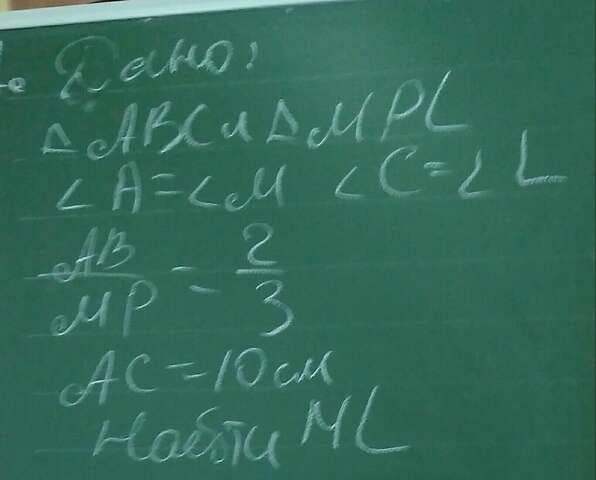 Дано:
△ABC и △MPL
∠A=∠M ∠C=∠L
AB/MP = 2/3
AC=10см
Найти ML